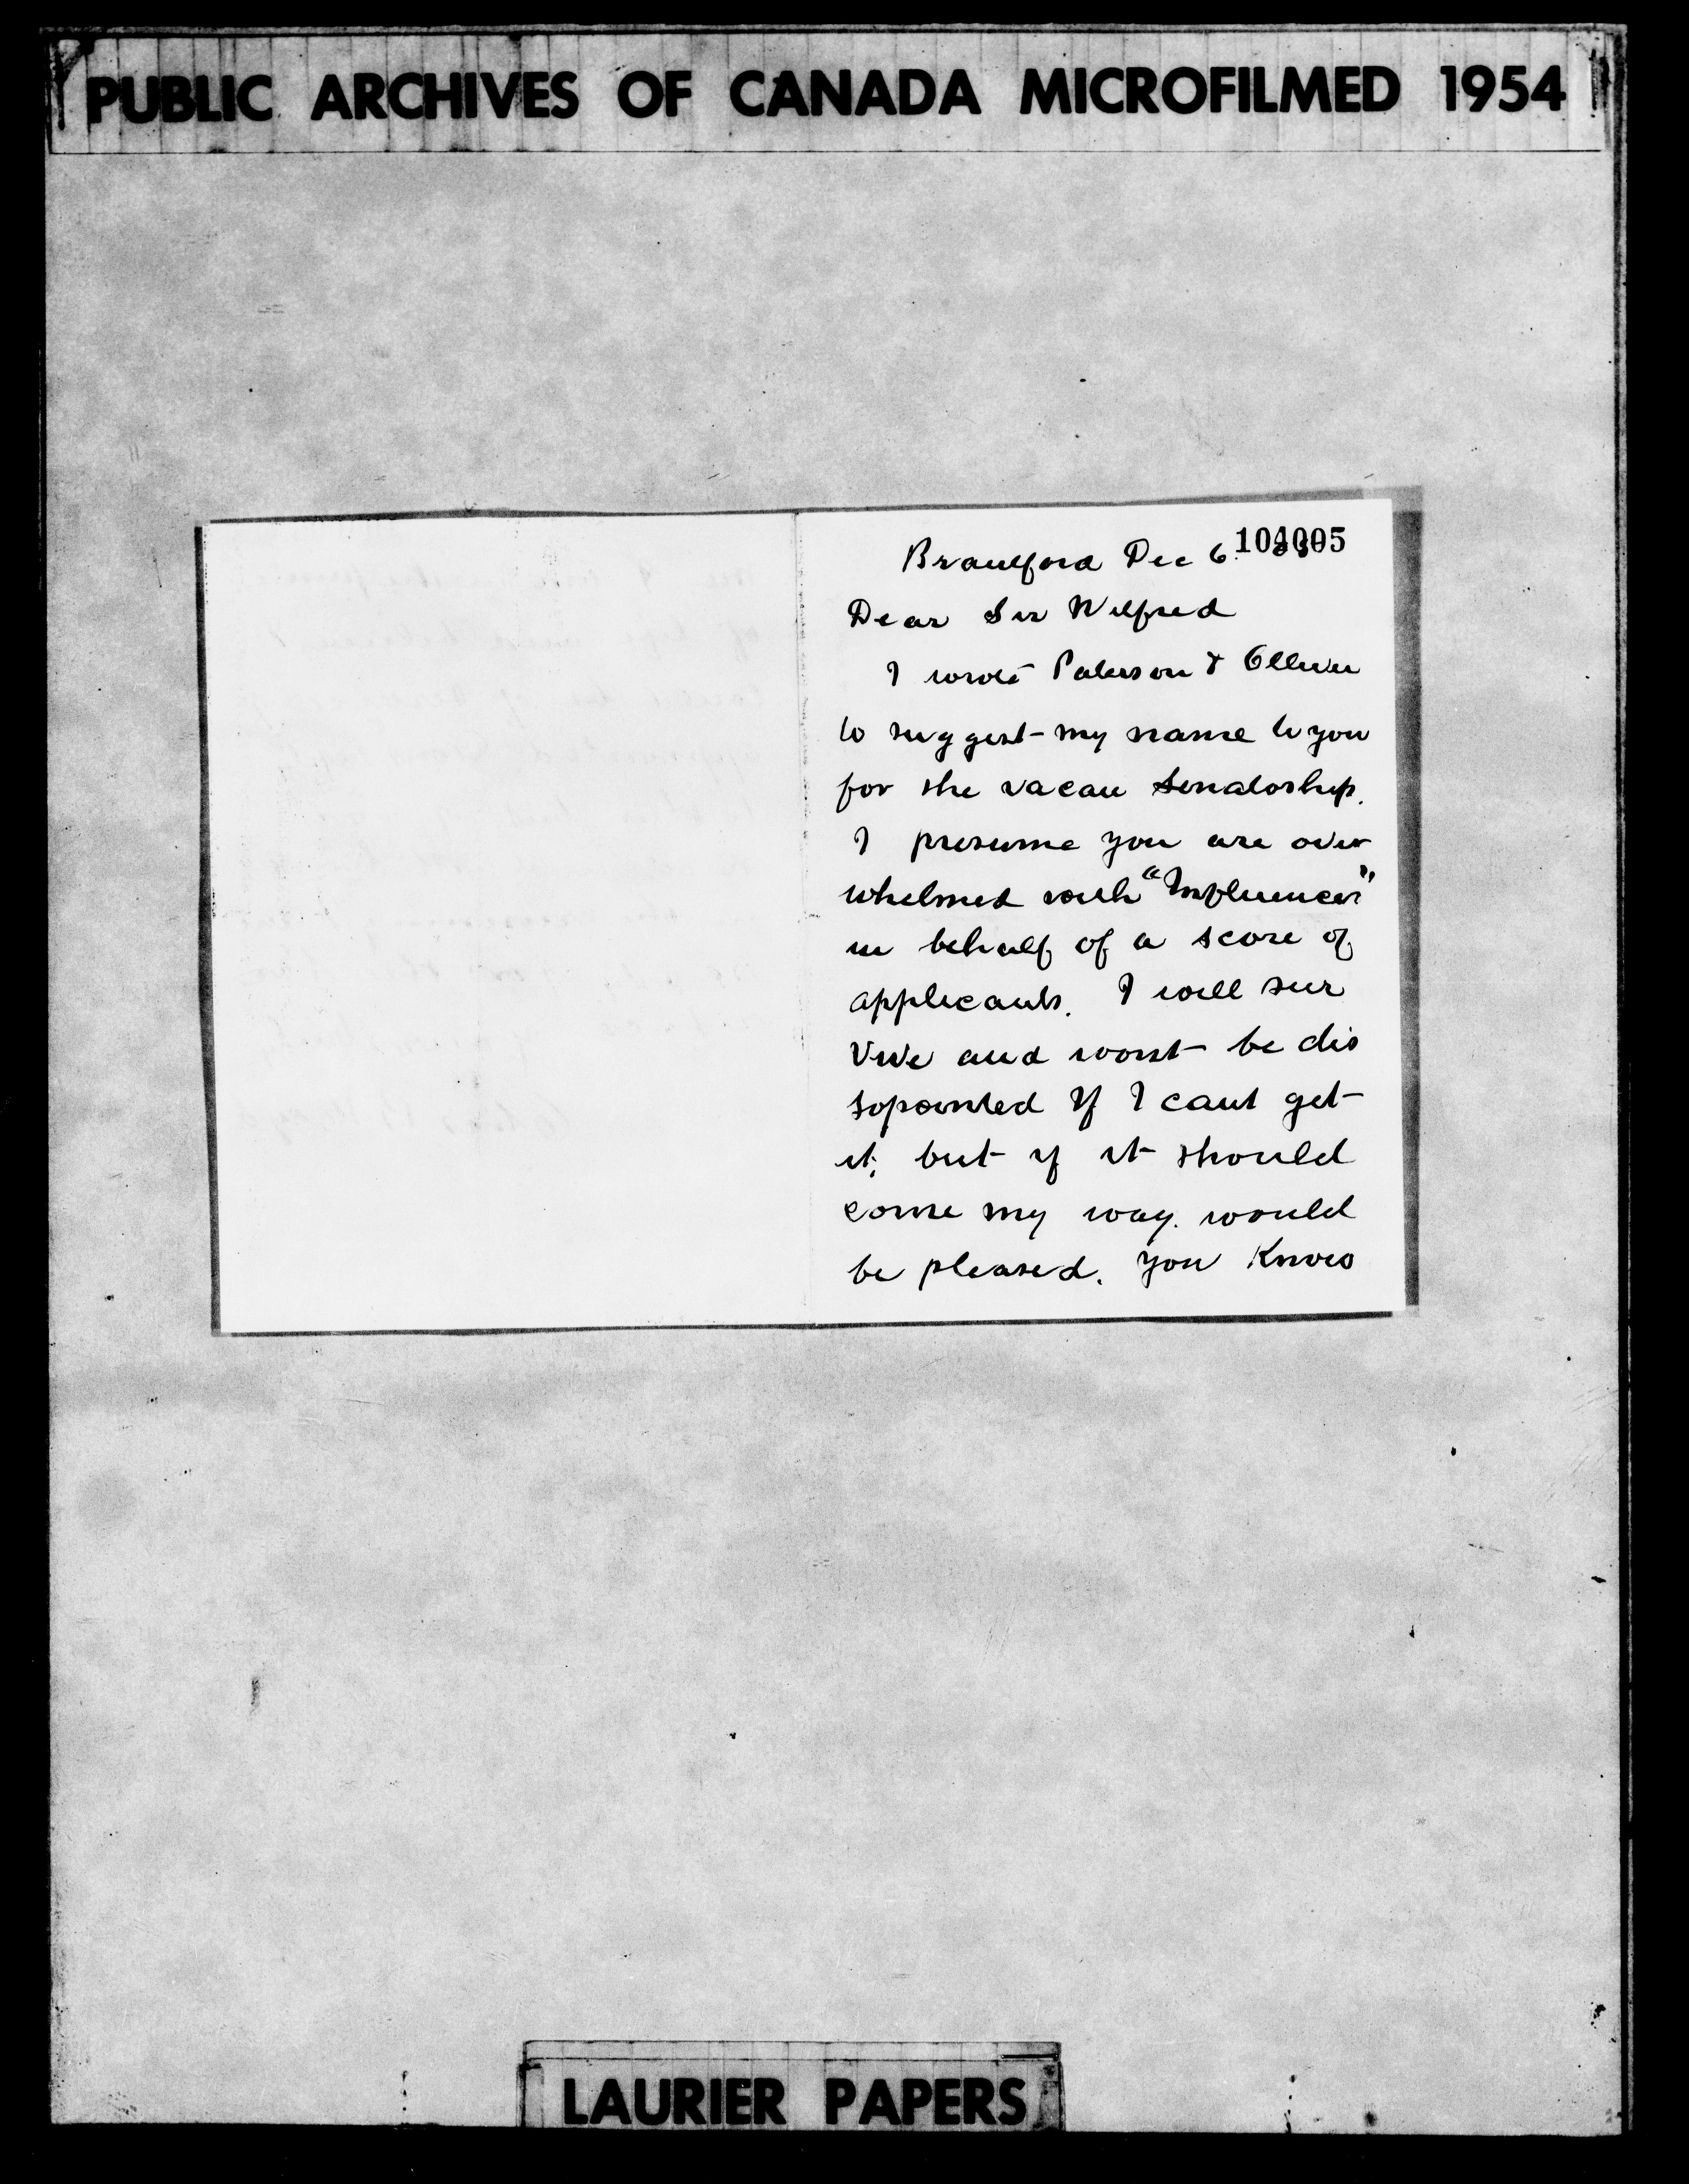 PUBLIC ARCHIVES OF CANADA MICROFILMED 1954
104005
Brantford Dec 6
Dear Sir Wilfred
I wrote Paterson & Olliver
to suggest my name to you
for the vacan Senatorship.
I presume you are over
whelmed with "Influences"
in behalf of a score of
applicants. I will sur
vive and wont be dis
sopointed If I cant get
it, but if it should
come my way. would
be pleased. you Know
LAURIER PAPERS